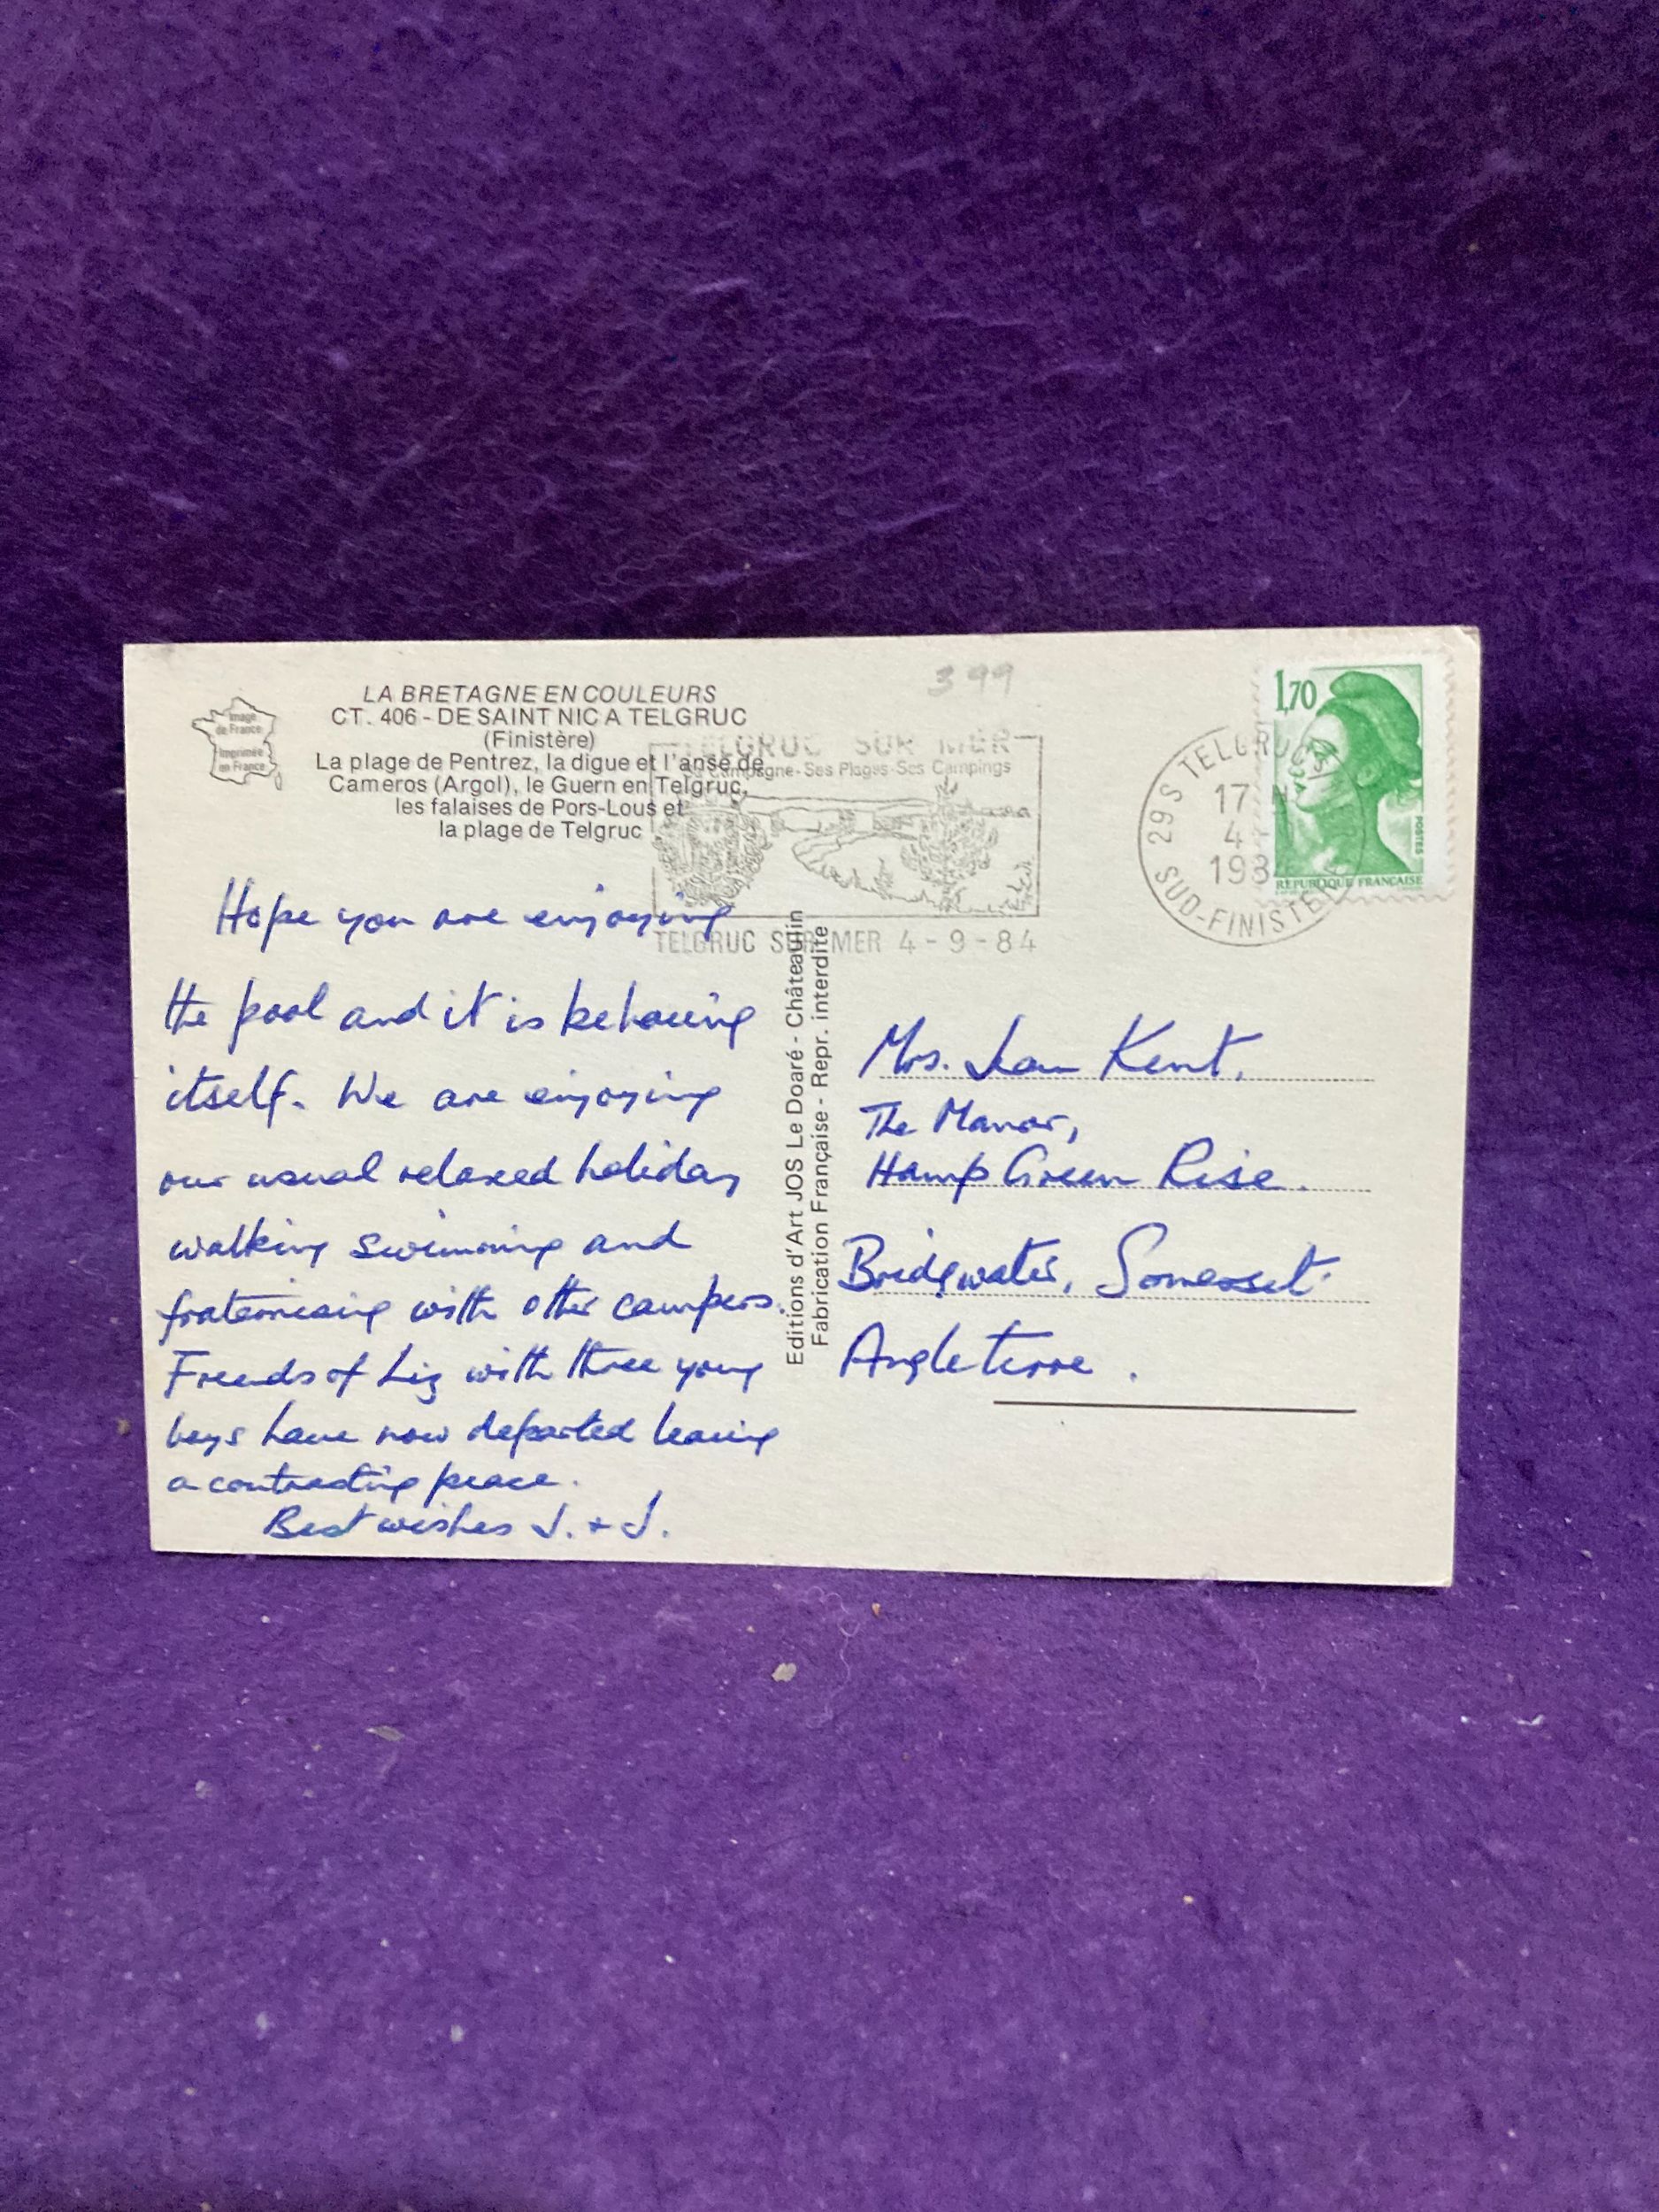 Image
de France
Imprimée
en France
LA BRETAGNE EN COULEURS
CT. 406 - DE SAINT NIC A TELGRUC
(Finistère)
La plage de Pentrez, la digue et l'anse de
Cameros (Argol), le Guern en Telgruc,
les falaises de Pors-Lous et
la plage de Telgruc
399
TELGRUC SUR MER
Campagne-Ses Plages-Ses Campings
TELGRUC SUR MER 4-9-84
29S TELGRUC
17
4
198
SUD-FINISTE
1,70
POSTES
REPUBLIQUE FRANÇAISE
Hope you are enjoying
the pool and it is behaving
itself. We are enjoying
our usual relaxed holiday
walking swimming and
fraternising with other campers.
Friends of Liz with three young
boys have now departed leaving
a contrasting peace.
Best wishes J. + J.
Editions d'Art JOS Le Doaré - Châteaulin
Fabrication Française - Repr. interdite
Mrs. Jean Kent,
The Manor,
Hamp Green Rise.
Bridgwater, Somerset.
Angleterre.